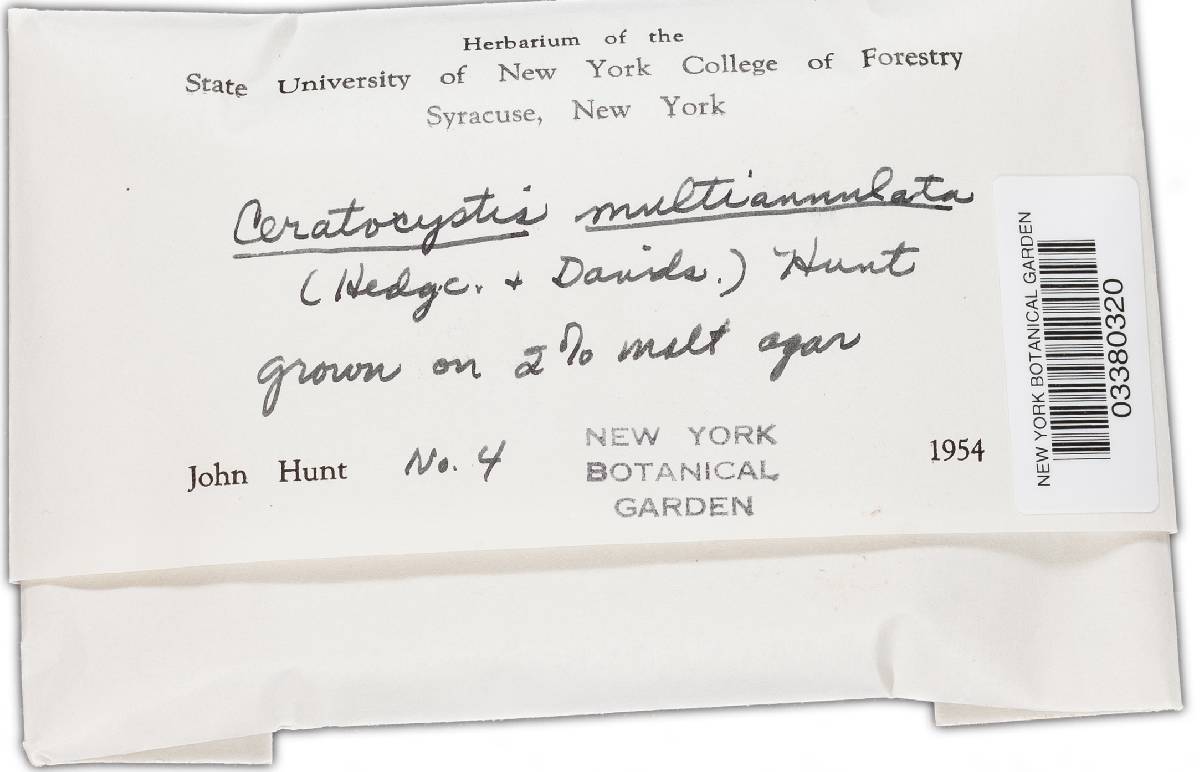 Herbarium of the
State University of New York College of Forestry
Syracuse, New York
Ceratocystis multiannulata
(Hedgc. + Davids.) Hunt
grown on 2% malt agar
John Hunt No. 4
1954
NEW YORK
BOTANICAL
GARDEN
NEW YORK BOTANICAL GARDEN
03380320